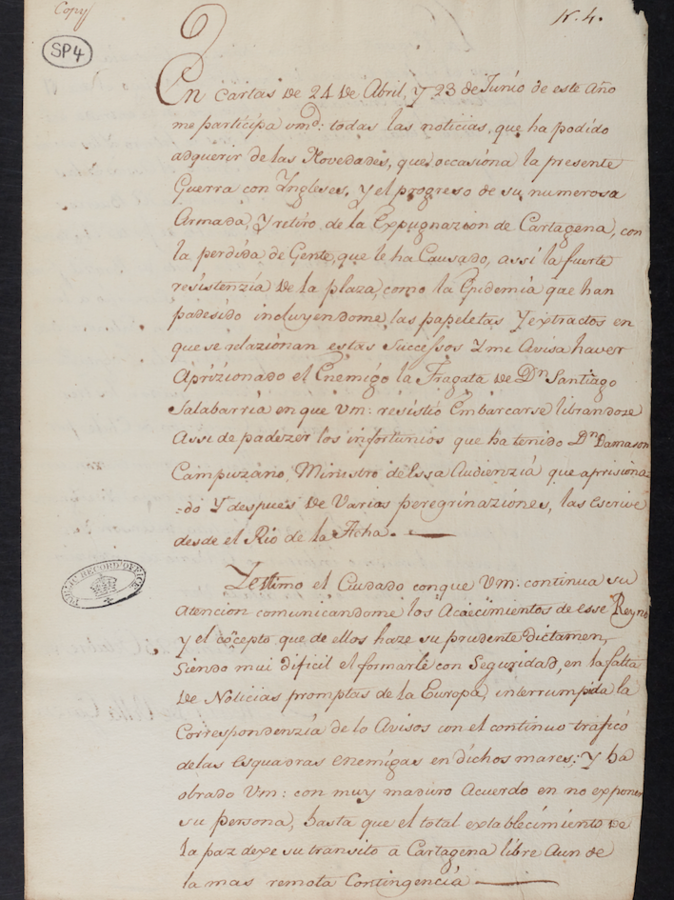 Copy
N. 4.
SP4
En Cartas de 24 de Abril, y 23 de Junio de este Año
me participa vmd: todas las noticias, que ha podido
adquerir de las Novedades, que occasiona la presente
Guerra con Ingleses, y el progreso de su numerosa
Armada, y retiro de la Expugnazion de Cartagena, con
la perdida de Gente, que le ha Causado, assi la fuerte
resistenzia de la plaza, como la Epidemia que han
padesido incluyendome las papeletas y extractos en
que se relazionan estos Successos y me Avisa haver
Aprizionado el Enemigo la Fragata de Dn Santiago
Salabarria en que Vm: resistio Embarcarse librandoze
Assi de padezer los infortunios que ha tenido Dn Damason
Campuzano, Ministro de Essa Audienzia que aprisiona=
=do y despues de Varias peregrinaziones, las Escrive
desde el Rio de la Acha.
PUBLIC RECORD OFFICE
Yestimo el Cuidado conque Vm: continua su
atencion comunicandome los Acaecimientos de esse Reyno
y el cocepto que de ellos haze su prudente dictamen,
Siendo mui dificil el formarle con Seguridad, en la falta
de Noticias promptas de la Europa, interrumpida la
Correspondenzia de lo Avisos con el continuo trafico
de las esquadras enemigas en dichos mares; y ha
obrado Vm: con muy maduro Acuerdo en no exponer
su persona, hasta que el total extablecimiento de
la paz dexe su transito a Cartagena libre Aun de
la mas remota Contingencia